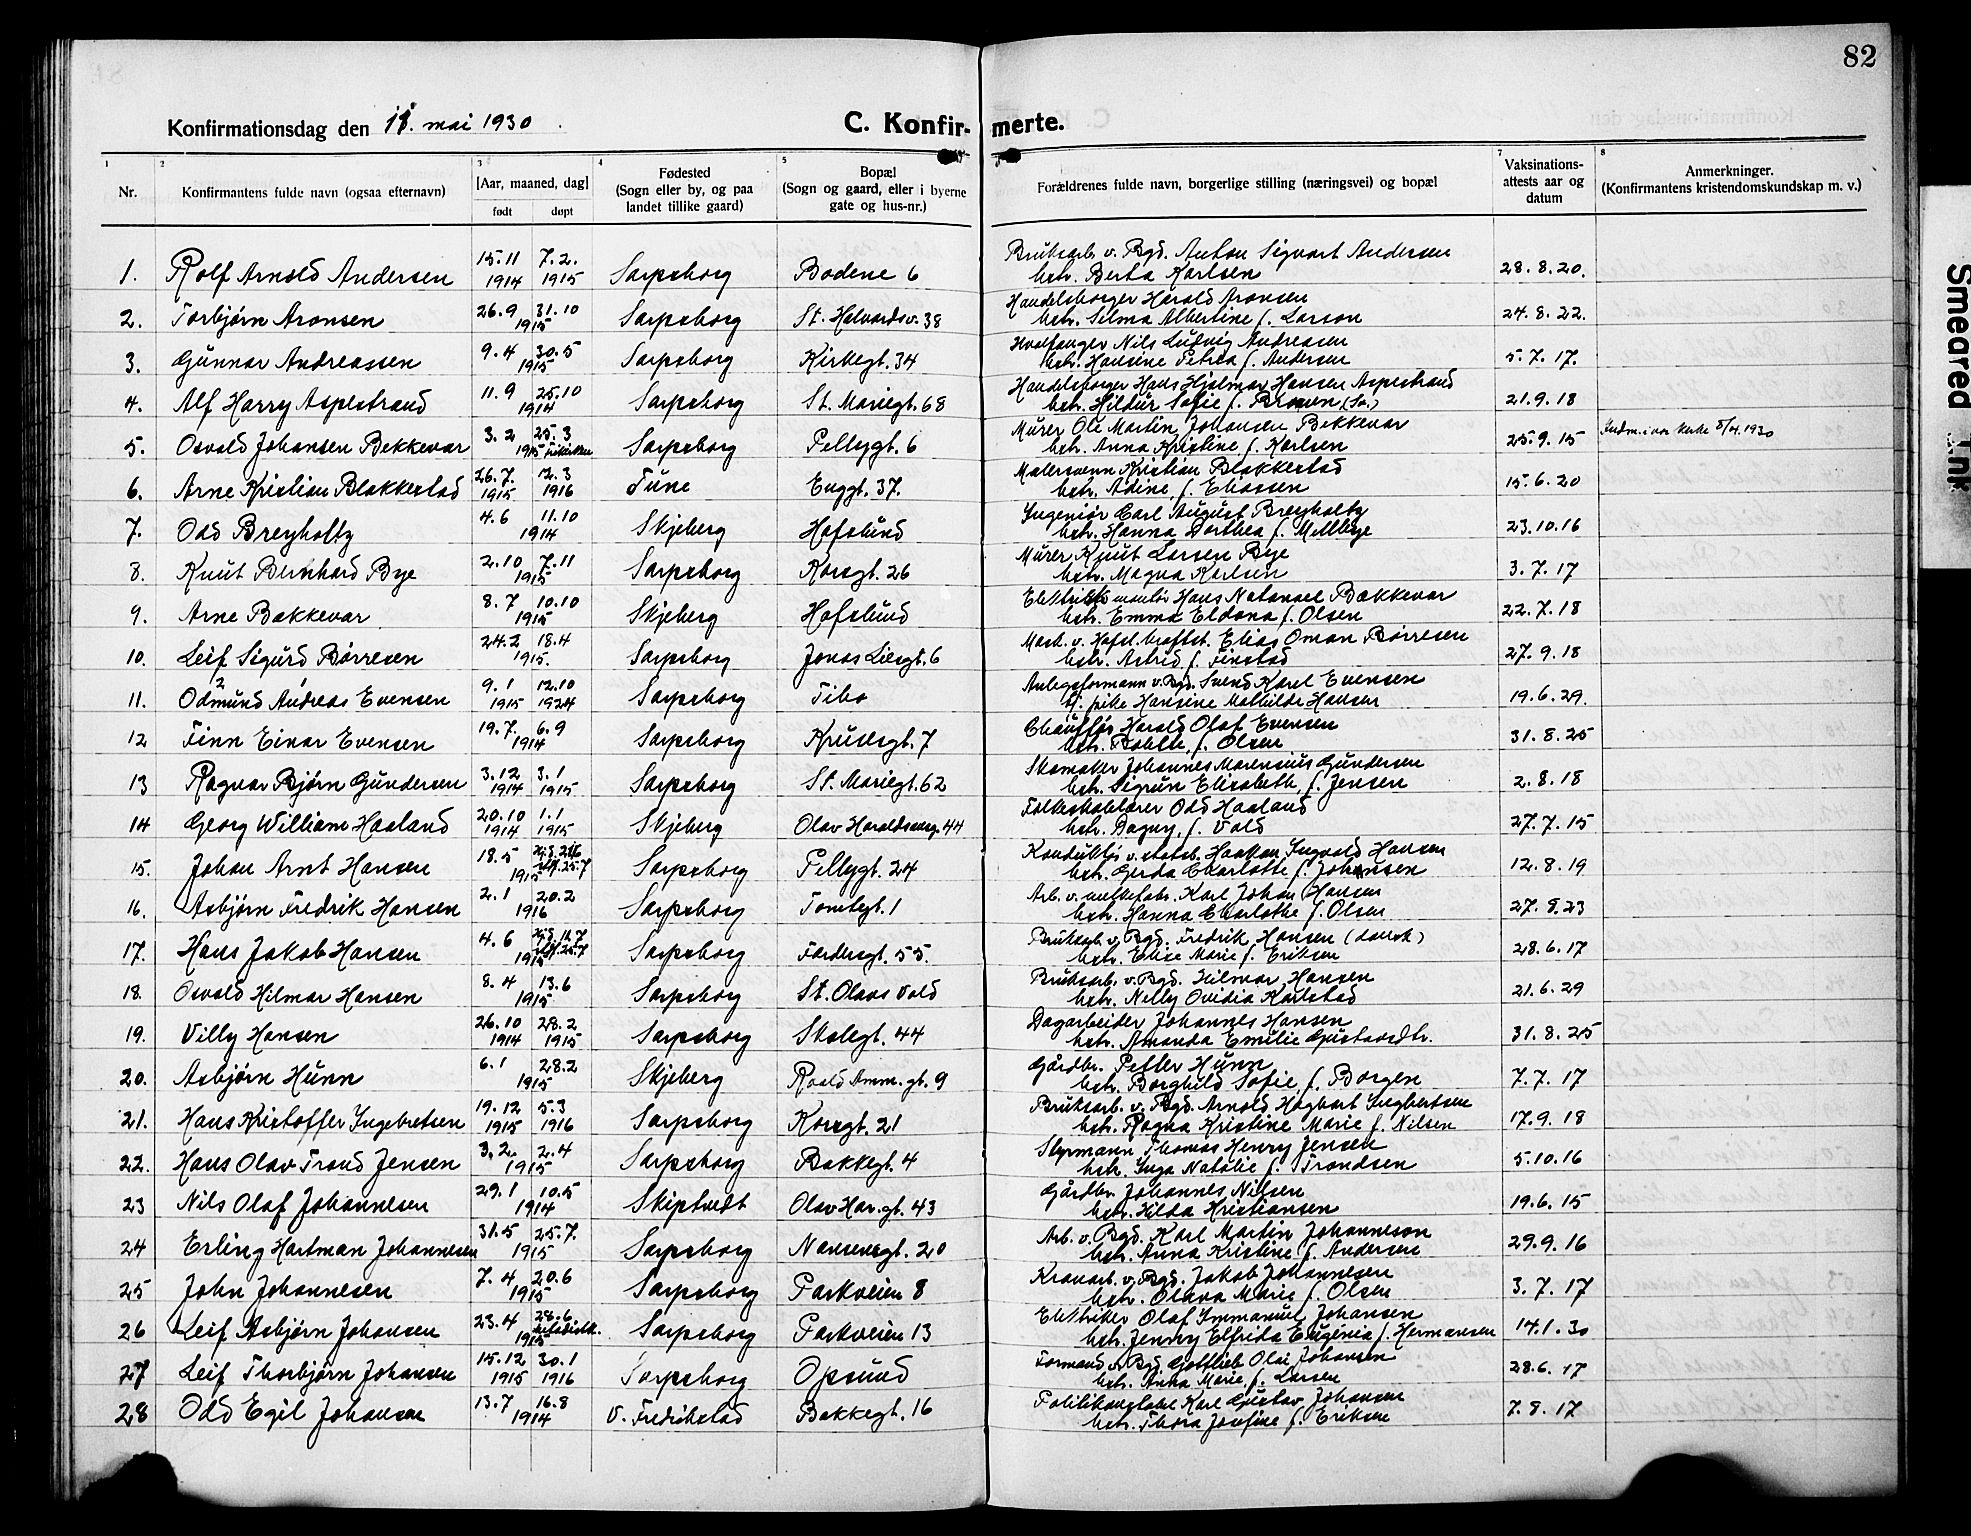 82
Konfirmationsdag den 11. mai 1930
C. Konfir- merte.
1 2 3 4 5 7 8
Nr. Konfirmantens fulde navn (ogsaa efternavn) [Aar, maaned, dag] født døpt Fødested (Sogn eller by, og paa landet tillike gaard) Bopæl (Sogn og gaard, eller i byerne gate og hus-nr.) Forældrenes fulde navn, borgerlige stilling (næringsvei) og bopæl Vaksinations-attests aar og datum Anmerkninger. (Konfirmantens kristendomskundskap m. v.)
1. Rolf Arnold Andersen 15.11 1914 7.2. 1915 Sarpsborg Bodene 6 Bruksarb. v. Bgd. Anton Sigvart Andersen
hstr. Berta Karlsen 28.8.20.
2. Torbjørn Aronsen 26.9 31.10 1915 Sarpsborg St. Halvardsv. 38 Handelsborger Harald Aronsen
hstr. Selma Albertine f. Larson 24.8.22.
3. Gunnar Andreassen 9.4 30.5 1915 Sarpsborg Kirkegt. 34 Hvalfanger Nils Ludvig Andreasen
hstr. Hansine Petrea f. Andersen 5.7.17.
4. Alf Harry Aspestrand 11.9 25.10 1914 Sarpsborg St. Mariegt. 68 Handelsborger Hans Hjalmar Hansen Aspestrand
hstr. Hildur Sofie f. (Sv.) 21.9.18
5. Osvald Johansen Bekkevar 3.2 25.3 1915 frikirken Sarpsborg Pellygt. 6 Murer Ole Martin Johansen Bekkevar
hstr. Anna Kristine f. Karlsen 25.9.15 Indm. i vor kirke 8/4.1930
6. Arne Kristian Blakkestad 26.7. 1915 12.3 1916 Tune Enggt. 37. Malersvenn Kristian Blakkestad
hstr. Adine, f. Eliassen 15.6.20
7. Odd Breyholtz 4.6 11.10 1914 Skjeberg Hafslund Ingeniør Carl August Breyholtz
hstr. Hanna Dorthea f. Mellbye 23.10.16
8. Knut Bernhard Bye 2.10 7.11 1915 Sarpsborg Korsgt. 26 Murer Knut Larsen Bye
hstr. Magna Karlsen 3.7.17
9. Arne Bakkevar 8.7 10.10 1915 Skjeberg Hafslund montør Hans Natanael Bakkevar
hstr. Emma Eldana f. Olsen 22.7.18
10. Leif Sigurd Børresen 24.2 18.4 1915. Sarpsborg Jonas Liesgt. 6 Mask. v. Hafsl. kraftst. Elias Oman Børresen
hstr. Astrid f. Finstad 27.9.18
11. Odmund Andreas Evensen 9.1 1915 12.10 1924 Sarpsborg Tibo Anlegsformann v. Bgd. Svend Karel Evensen
pike Hansine Mathilde Hansen 19.6.29.
12 Finn Einar Evensen 19.7. 6.9 1914 Sarpsborg Krusesgt. 7 Chauffør Harald Olaf Evensen
hstr. Bolette, f. Olsen 31.8.25
13 Ragnar Bjørn Gundersen 3.12 1914 3.1 1915 Sarpsborg St. Mariegt. 62 Skomaker Johannes Marensius Gundersen
hstr. Sigrun Elisabeth, f. Jensen 2.8.18
14 Georg William Haaland 20.10 1914 1.1 1915 Skjeberg Olav Haraldsveg. 44 Folkeskolelærer Odd Haaland
hstr. Dagny, f. Vold 27.7.15
15. Johan Arnt Hansen 18.5 1915 Hj.d. 21/6 st.f. 25.7 Sarpsborg Pellygt. 24 Konduktør v. statsb. Haakon Ingvald Hansen
hstr. Gerda Charlotte f. Johansen 12.8.19
16. Asbjørn Fredrik Hansen 2.1 20.2 1916 Sarpsborg Tomtegt. 1 Arb. v. melkefabr. Karl Johan Hansen
hstr. Hanna Charlotte f. Olsen 27.8.23
17. Hans Jakob Hansen 4.6 1915 Hj.d. 12.7 st.f. 25.7 Sarpsborg Fardersgt. 55. Bruksarb. v. Bgd. Fredrik Hansen (dansk)
hstr. Elise Marie f. Eriksen 28.6.17
18. Osvald Hilmar Hansen 8.4 13.6 1915 Sarpsborg St. Olavs Vold Bruksarb. v. Bgd. Hilmar Hansen
hstr. Nelly Ovidia Karlstad 21.6.29
19. Villy Hansen 26.10 1914 28.2 1915 Sarpsborg Skolegt. 44 Dagarbeider Johannes Hansen
hstr. Amanda Emilie Gustavsdtr. 31.8.25
20. Asbjørn Hunn 6.1 28.2 1915 Skjeberg Roald Amm. gt. 9 Gårdbr. Petter Hunn
hstr. Borghild Sofie, f. Borgen 7.7.17
21. Hans Kristoffer Ingebretsen 19.12 1915 5.3 1916 Sarpsborg Korsgt. 21 Bruksarb. v. Bgd. Arnold Hagbart Ingbertsen
hstr. Ragna Kristine Marie f. Nilsen 17.9.18
22. Hans Olav Trond Jensen 3.2. 2.4 1915 Sarpsborg Bakkegt. 4 Styrmann Thomas Henry Jensen
hstr. Inga Natalie f. Trondsen 5.10.16
23 Nils Olaf Johannesen 29.1 10.5 1914 Skiptvedt Olav Har. gt. 43 Gårdbr. Johannes Nilsen
hstr. Hilda Kristiansen 19.6.15
24 Erling Hartman Johannesen 31.5 25.7. 1915 Sarpsborg Nansensgt. 20 Arb. v. Bgd. Karl Martin Johanneson
hstr. Anna Kristine f. Andersen 29.9.16
25 John Johannesen 7.4 20.6 1915 Sarpsborg Parkveien 8 Kranarb. v. Bgd. Jakob Johannesen
hstr. Olava Marie f. Olsen 3.7.17
26 Leif Asbjørn Johansen 23.4 28.6. 1915 Sarpsborg Parkveien 13 Elektriker Olaf Immanuel Johansen
hstr. Jenny Elfrida Eugénia f. Hermansen 14.1.30
27 Leif Thorbjørn Johansen 15.12 1915 30.1 1916 Sarpsborg Opsund Formand v. Bgd. Gottlieb Olai Johansen
hstr. Anna Marie, f. Larsen 28.6.17
28 Odd Egil Johansen 13.7 16.8 1914 V. Fredrikstad Bakkegt. 16 Politikonstabel Karl Gustav Johansen
hstr. Thora Josefine f. Eriksen 7.8.17
Smeared Ink